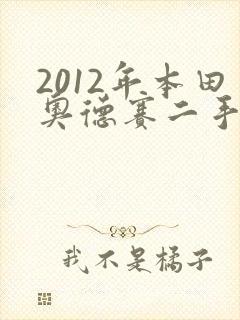 2012年本田
奥德赛二手
我不是橘子